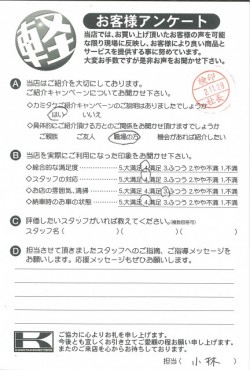 軽
お客様アンケート
当店では、お買い上げ頂いたお客様の声を可能
な限り現場に反映し、お客様により良い商品と
サービスを提供する事に努めています。
大変お手数ですが是非お声をお聞かせ下さい。
A 当店はご紹介を大切にしております。
ご紹介キャンペーンについてお聞かせ下さい。
・カミタケご紹介キャンペーンのご説明はありましたでしょうか
はい いいえ
・具体的にご紹介頂ける方とのご関係をお聞かせ頂けますでしょうか
ご親族 ご友人 職場の方 機会があれば紹介したい
B 当店を実際にご利用になった印象をお聞かせ下さい。
・総合的な満足度 5.大満足 4.満足 3.ふつう 2.やや不満 1.不満
・スタッフの対応 5.大満足 4.満足 3.ふつう 2.やや不満 1.不満
・お店の雰囲気、清掃 5.大満足 4.満足 3.ふつう 2.やや不満 1.不満
・納車時のお車の状態 5.大満足 4.満足 3.ふつう 2.やや不満 1.不満
C 評価したいスタッフがいれば教えてください(複数回答可)
スタッフ名( )( )( )
D 担当させて頂きましたスタッフへのご指摘、ご指導メッセージを
お願いします。応援メッセージもぜひお願いします。
K
ご協力に心よりお礼を申し上げます。
今後とも宜しくお引き立てご愛顧の程お願い申し上げます。
またのご来店を心からお待ちしております。
担当( 小林 )